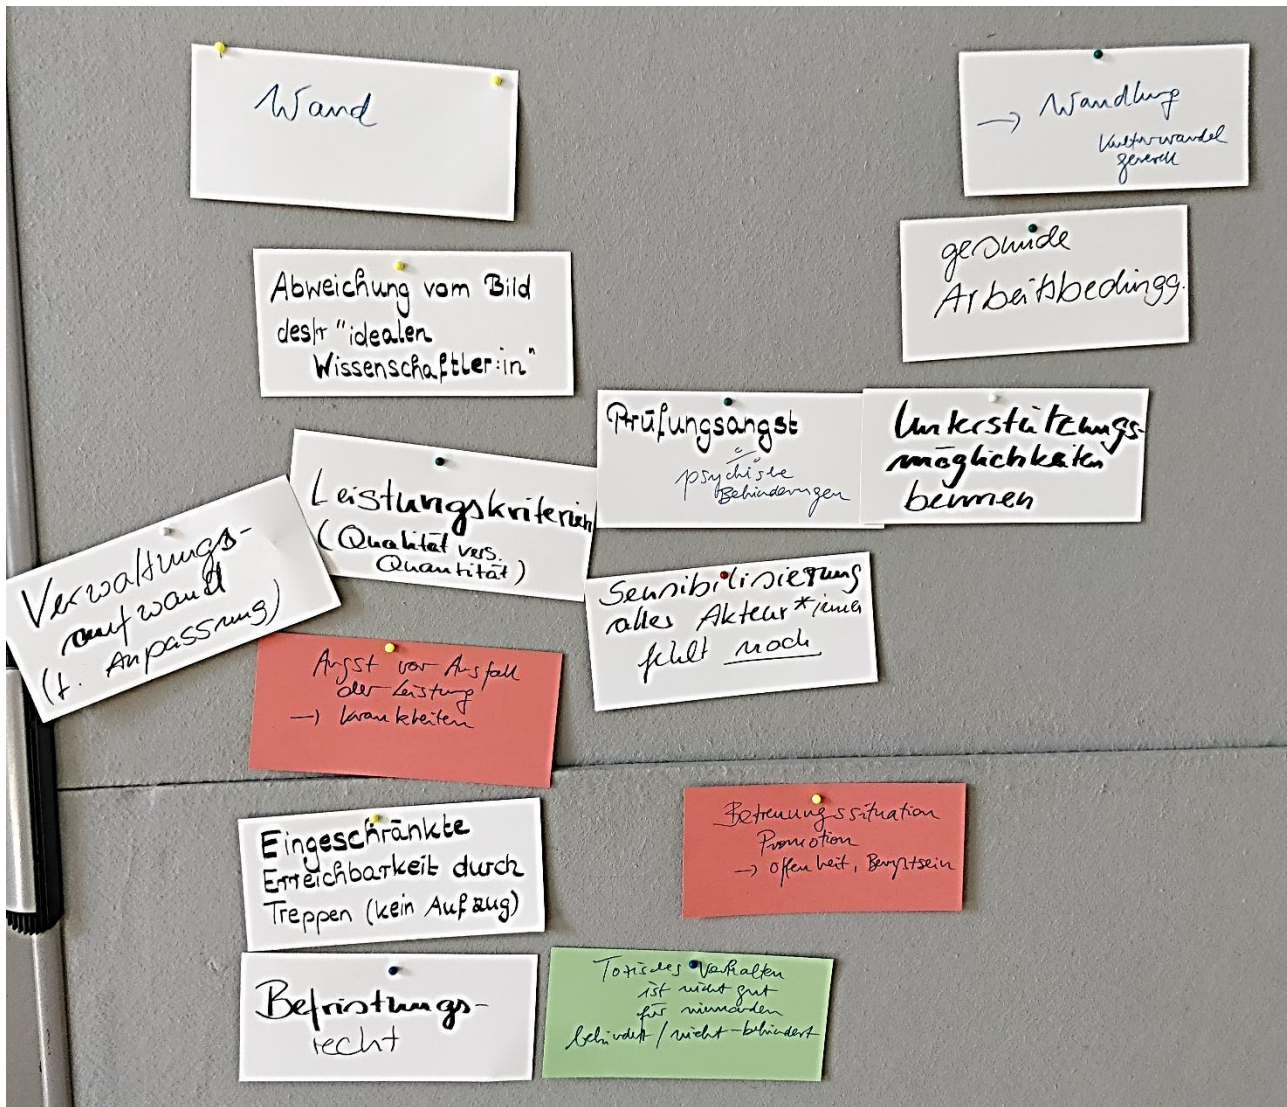 Wand
→ Wandlung
Kulturwandel
generell
gesunde
Arbeitsbedingg.
Abweichung vom Bild
des/r "idealen
Wissenschaftler:in"
Prüfungsangst
psychische
Behinderungen
Unterstützungs-
möglichkeiten
bennen
Leistungskriterien
(Qualität vers.
Quantität)
Verwaltungs-
aufwand
(f. Anpassung)
Sensibilisierung
alles Akteur*innen
fehlt noch
Angst vor Ausfall
der Leistung
→ Krankheiten
Eingeschränkte
Erreichbarkeit durch
Treppen (kein Aufzug)
Betreuungssituation
Promotion
→ Offenheit, Bewußtsein
Befristungs-
recht
Toxisches Verhalten
ist nicht gut
für niemanden
behindert / nicht-behindert